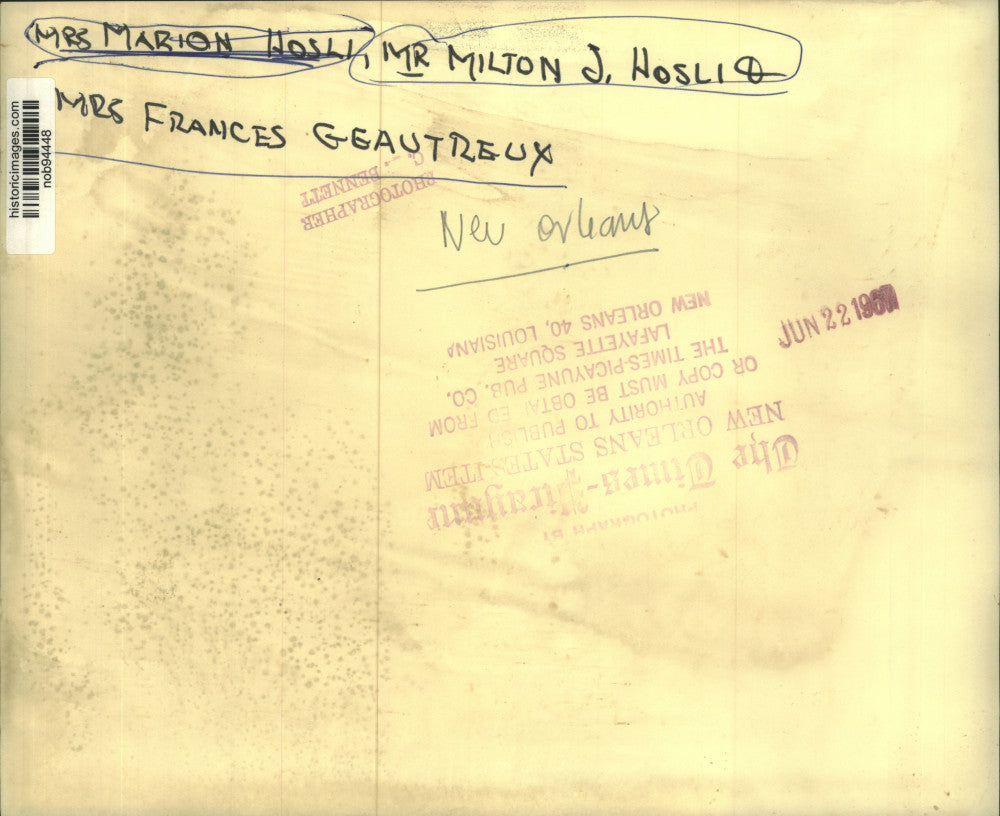 MRS MARION HOSLI, MR MILTON J. HOSLI
MRS FRANCES GEAUTREUX
historicimages.com
nob94448
PHOTOGRAPHER
C. J. BENNETT
New Orleans
JUN 22 1967
PHOTOGRAPH BY
The Times-Picayune
NEW ORLEANS STATES-ITEM
AUTHORITY TO PUBLISH
OR COPY MUST BE OBTAINED FROM
THE TIMES-PICAYUNE PUB. CO.
LAFAYETTE SQUARE
NEW ORLEANS 40, LOUISIANA